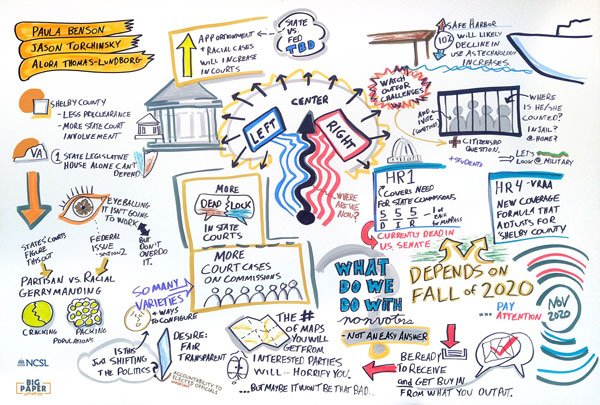 PAULA BENSON
JASON TORCHINSKY
ALORA THOMAS-LUNDBORG
APPORTIONMENT
+ RACIAL CASES
WILL INCREASE
IN COURTS
STATE
VS.
FED
TBD
SAFE HARBOR
10%
WILL LIKELY
DECLINE IN
USE AS TECHNOLOGY
INCREASES
SHELBY COUNTY
- LESS PRECLEARANCE
- MORE STATE COURT
INVOLVEMENT
CENTER
LEFT
RIGHT
WHERE ARE
WE
NOW?
WATCH
OUT FOR
CHALLENGES
AND IF
VOTE
(SOMETIMES)
WHERE
IS HE/SHE
COUNTED?
IN JAIL?
@ HOME?
+ CITIZENSHIP
QUESTION.
+ STUDENTS
LET'S
LOOK @ MILITARY
VA
1 STATE LEGISLATIVE
HOUSE ALONE CAN'T
DEFEND
EYEBALLING
IT ISN'T GOING
TO WORK
BUT
DON'T
OVERDO
IT.
STATES COURTS
FIGURE
THIS OUT
FEDERAL
ISSUE
- SECTION 2
PARTISAN VS. RACIAL
GERRYMANDING
CRACKING
PACKING
POPULATIONS
MORE
DEADLOCK
IN STATE
COURTS
MORE
COURT CASES
ON COMMISSIONS
SO MANY
VARIETIES
+ WAYS TO CONFIGURE
HR1
COVERS NEED
FOR STATE COMMISSIONS
5 5 5
D I R
CURRENTLY DEAD IN
U.S. SENATE
HR4 - VRAA
NEW COVERAGE
FORMULA THAT
ADJUSTS FOR
SHELBY COUNTY
WHAT
DO WE
DO WITH
nonvoters
- NOT AN EASY ANSWER
DEPENDS ON
FALL of 2020
PAY
ATTENTION
NOV
2020
IS THIS
JUST SHIFTING
THE POLITICS
DESIRE:
FAIR
TRANSPARENT
ACCOUNTABILITY TO
ELECTED OFFICIALS
THE #
OF MAPS
YOU WILL
GET FROM
INTERESTED PARTIES
WILL ... HORRIFY YOU.
... BUT MAYBE IT WON'T BE THAT BAD...
BE READY
TO RECEIVE
and GET BUY IN
FROM WHAT YOU OUTPUT.
NCSL
BIG
PAPER